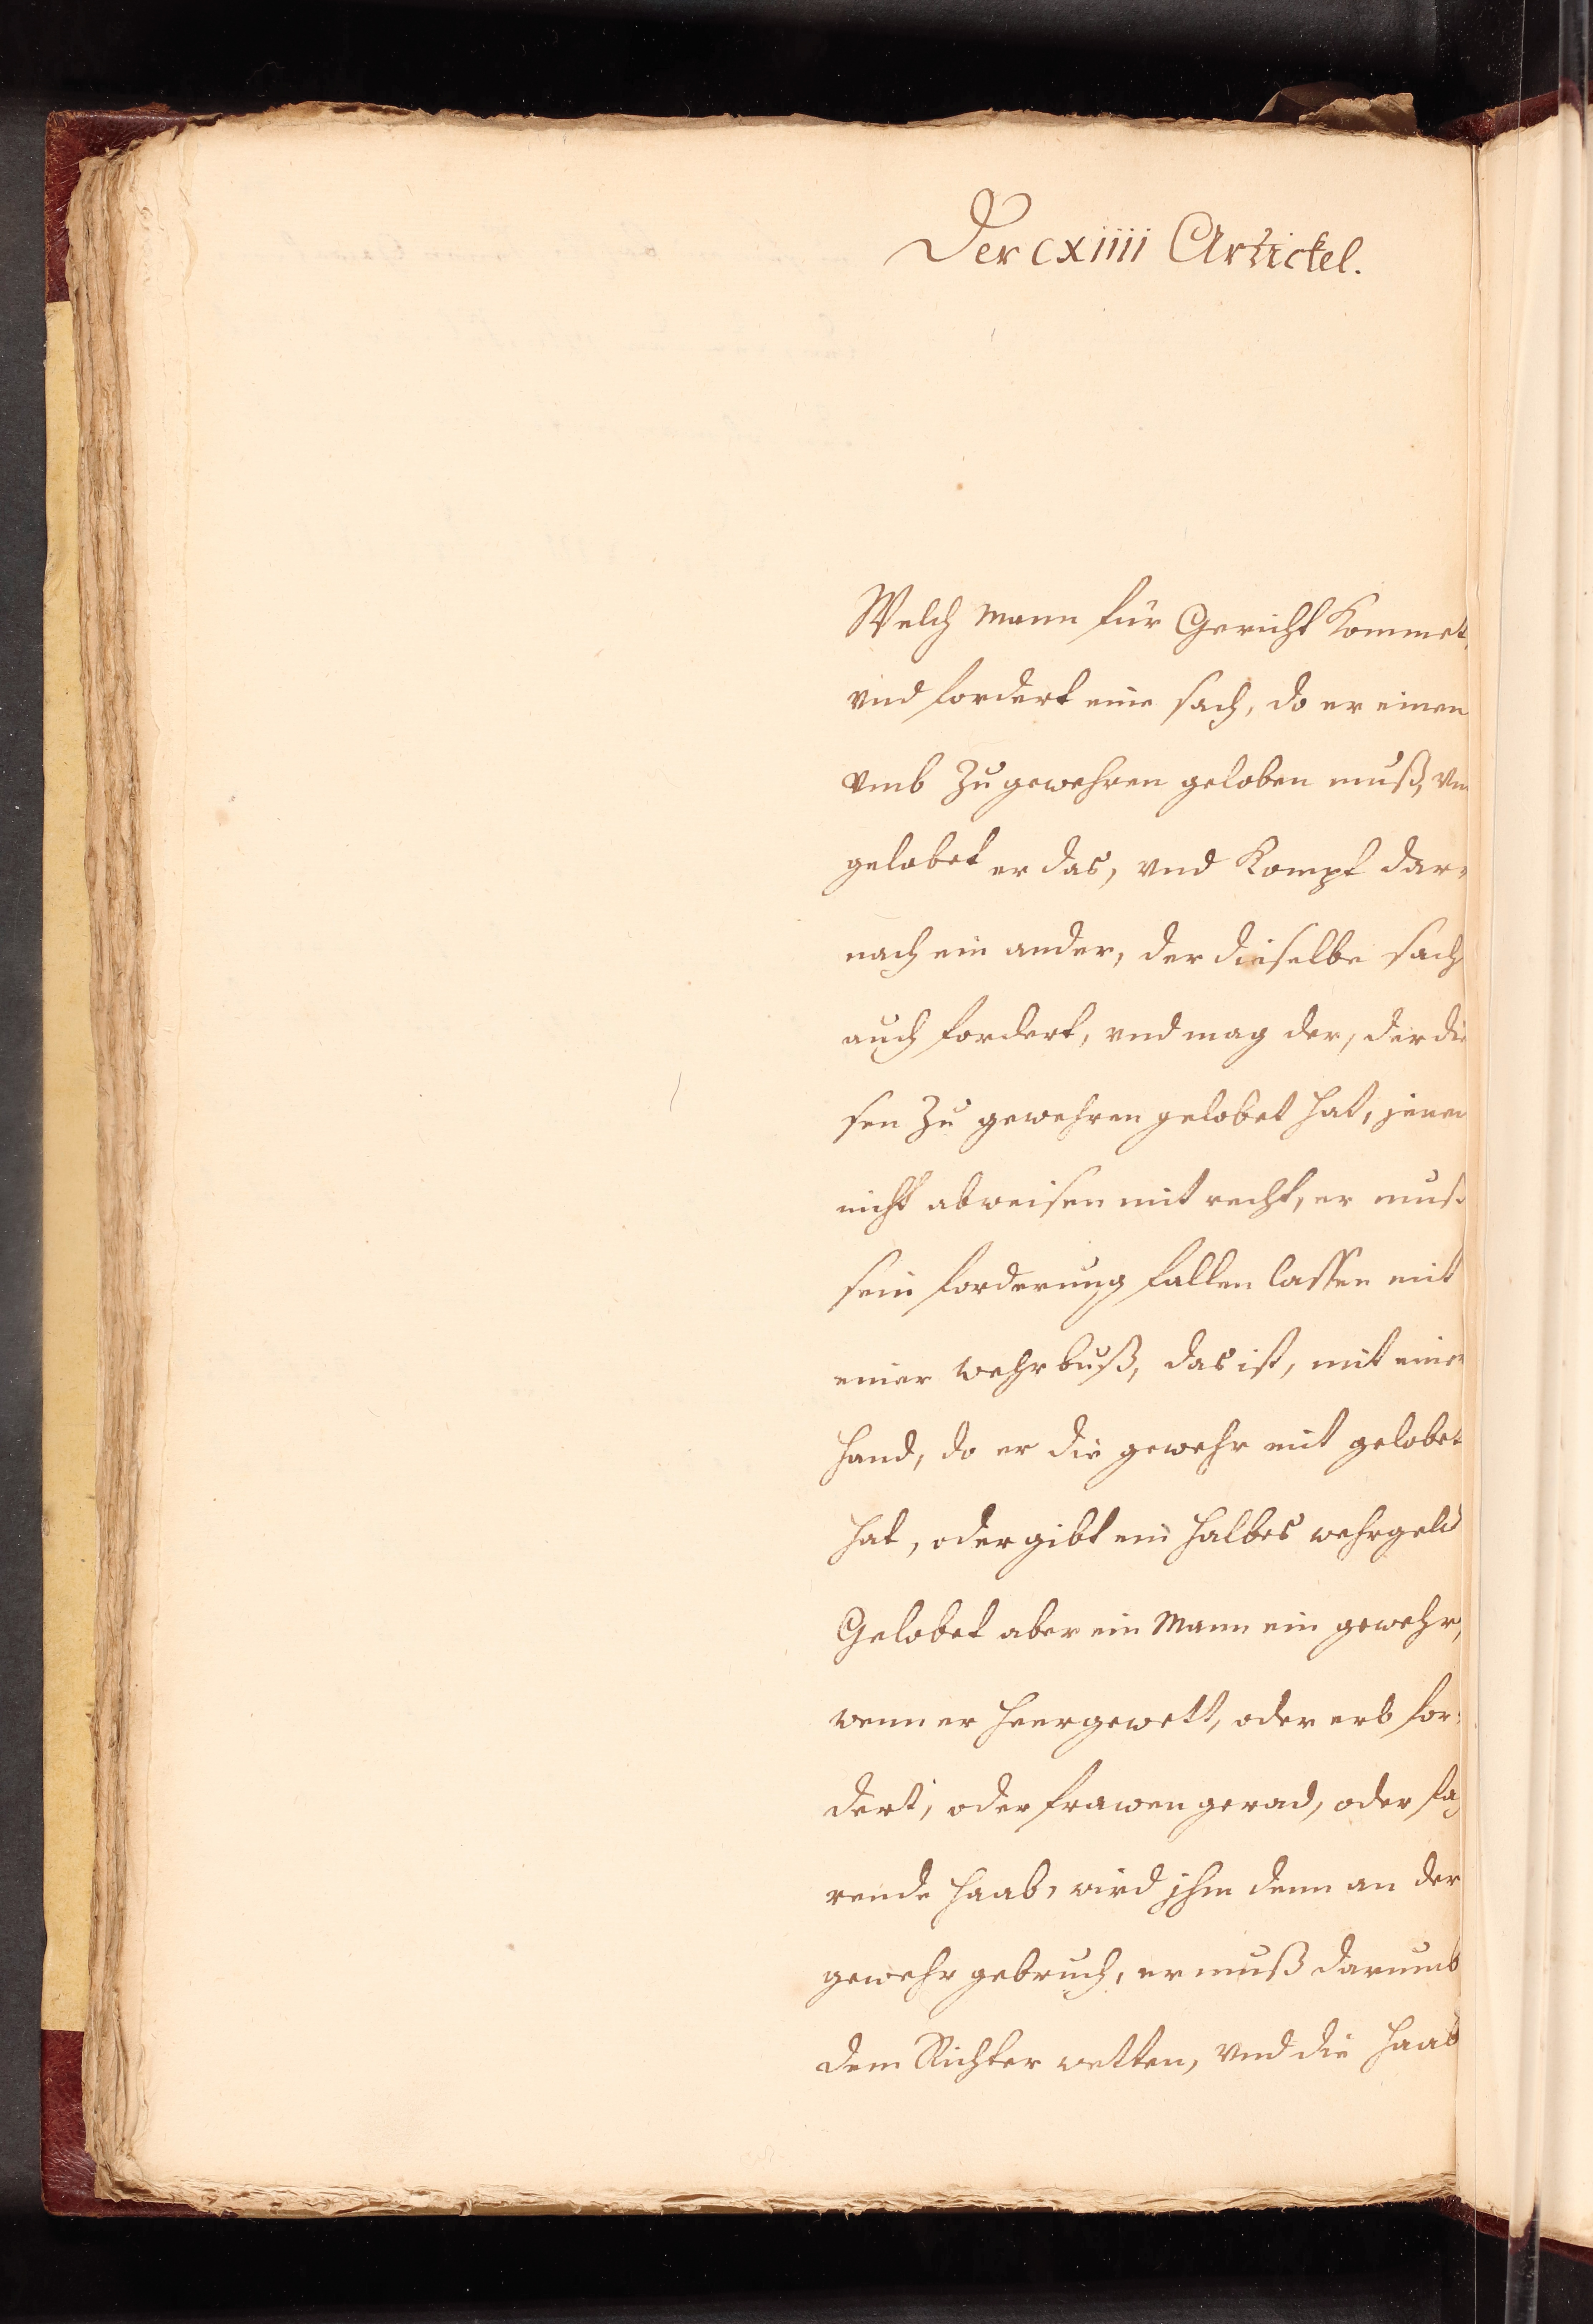 Der CXIIII Artickel.
Welch Mann für Gericht kommet,
vnd fordert eine sach, do er einen
vmb zu gewehren geloben muß, vn
gelobet er das, vnd kompt dar=
nach ein ander, der dieselbe sach
auch fordert, vnd mag der, der die
sen zu gewehren gelobet hat, jenen
nicht abweisen mit recht, er muß
sein forderung fallen lassen mit
einer wehrbuß, das ist, mit einer
hand, do er die gewehr mit gelobet
hat, oder gibt ein halbes wehrgeld
Gelobet aber ein Mann ein gewehr,
wenn er heergewett, oder erb for=
dert, oder frawen gerad, oder fa
rende haab, wird jhm denn an der
gewehr gebruch, er muß darumb
dem Richter wetten, vnd die haab